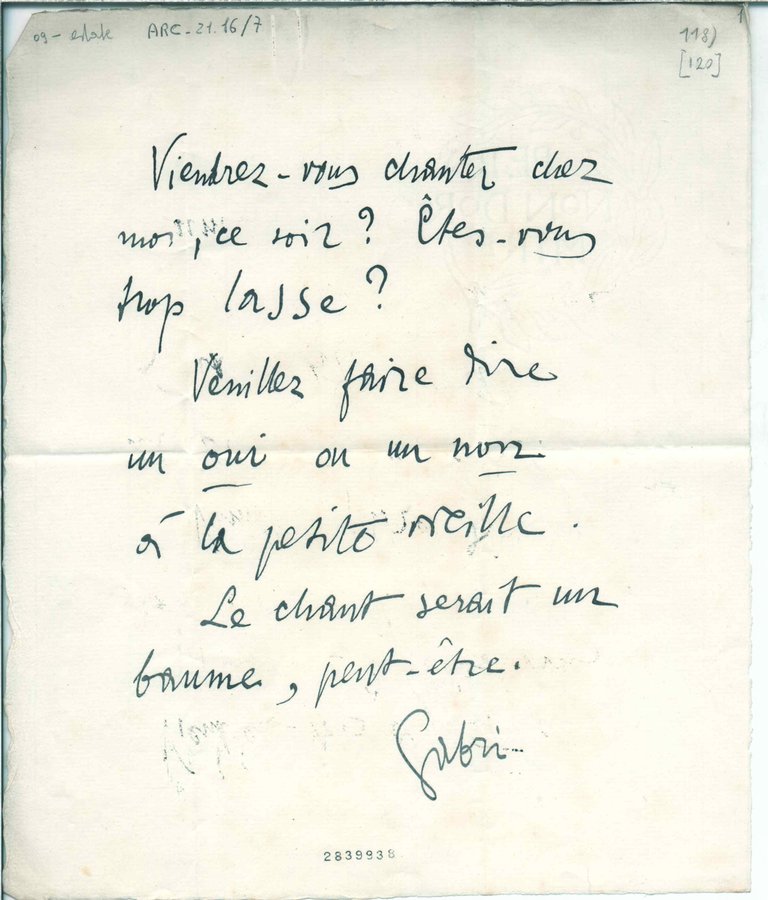 09 - estate ARC-21.16/7
118)
[120]
Viendrez-vous chanter chez
moi, ce soir ? Êtes-vous
trop lasse ?
Veuillez faire dire
un oui ou un non
à la petite vieille.
Le chant serait un
baume, peut-être.
Gabri
2839938